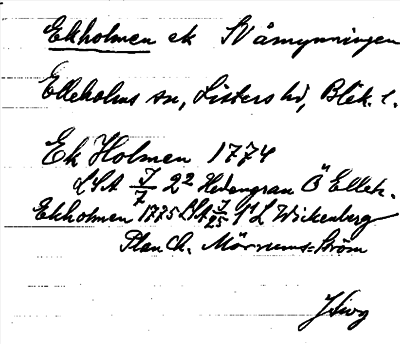 Ekholmen ek SV åmynningen
Elleholms sn, Listers hd, Blek. l.
Ek Holmen 1774
LSA J/7 2² Hedengran Ö Elleh.
Ekholmen 1775 LSA J/25 1¹ L Wickenberg
Plan Ch. Mörrums=ström